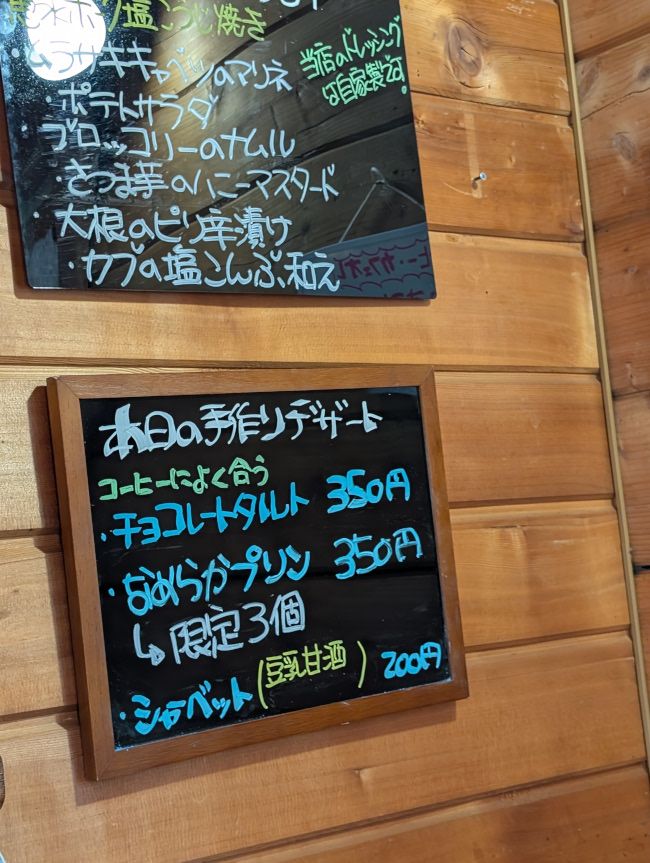 塩こうじ焼き
・ムラサキキャベツのマリネ
当店のドレッシング
は自家製です!
・ポテトサラダ
ブロッコリーのナムル
・さつま芋のハニーマスタード
・大根のピリ辛漬け
・カブの塩こんぶ和え
本日の手作りデザート
コーヒーによく合う
・チョコレートタルト 350円
・なめらかプリン 350円
↳限定3個
・シャーベット(豆乳甘酒) 200円